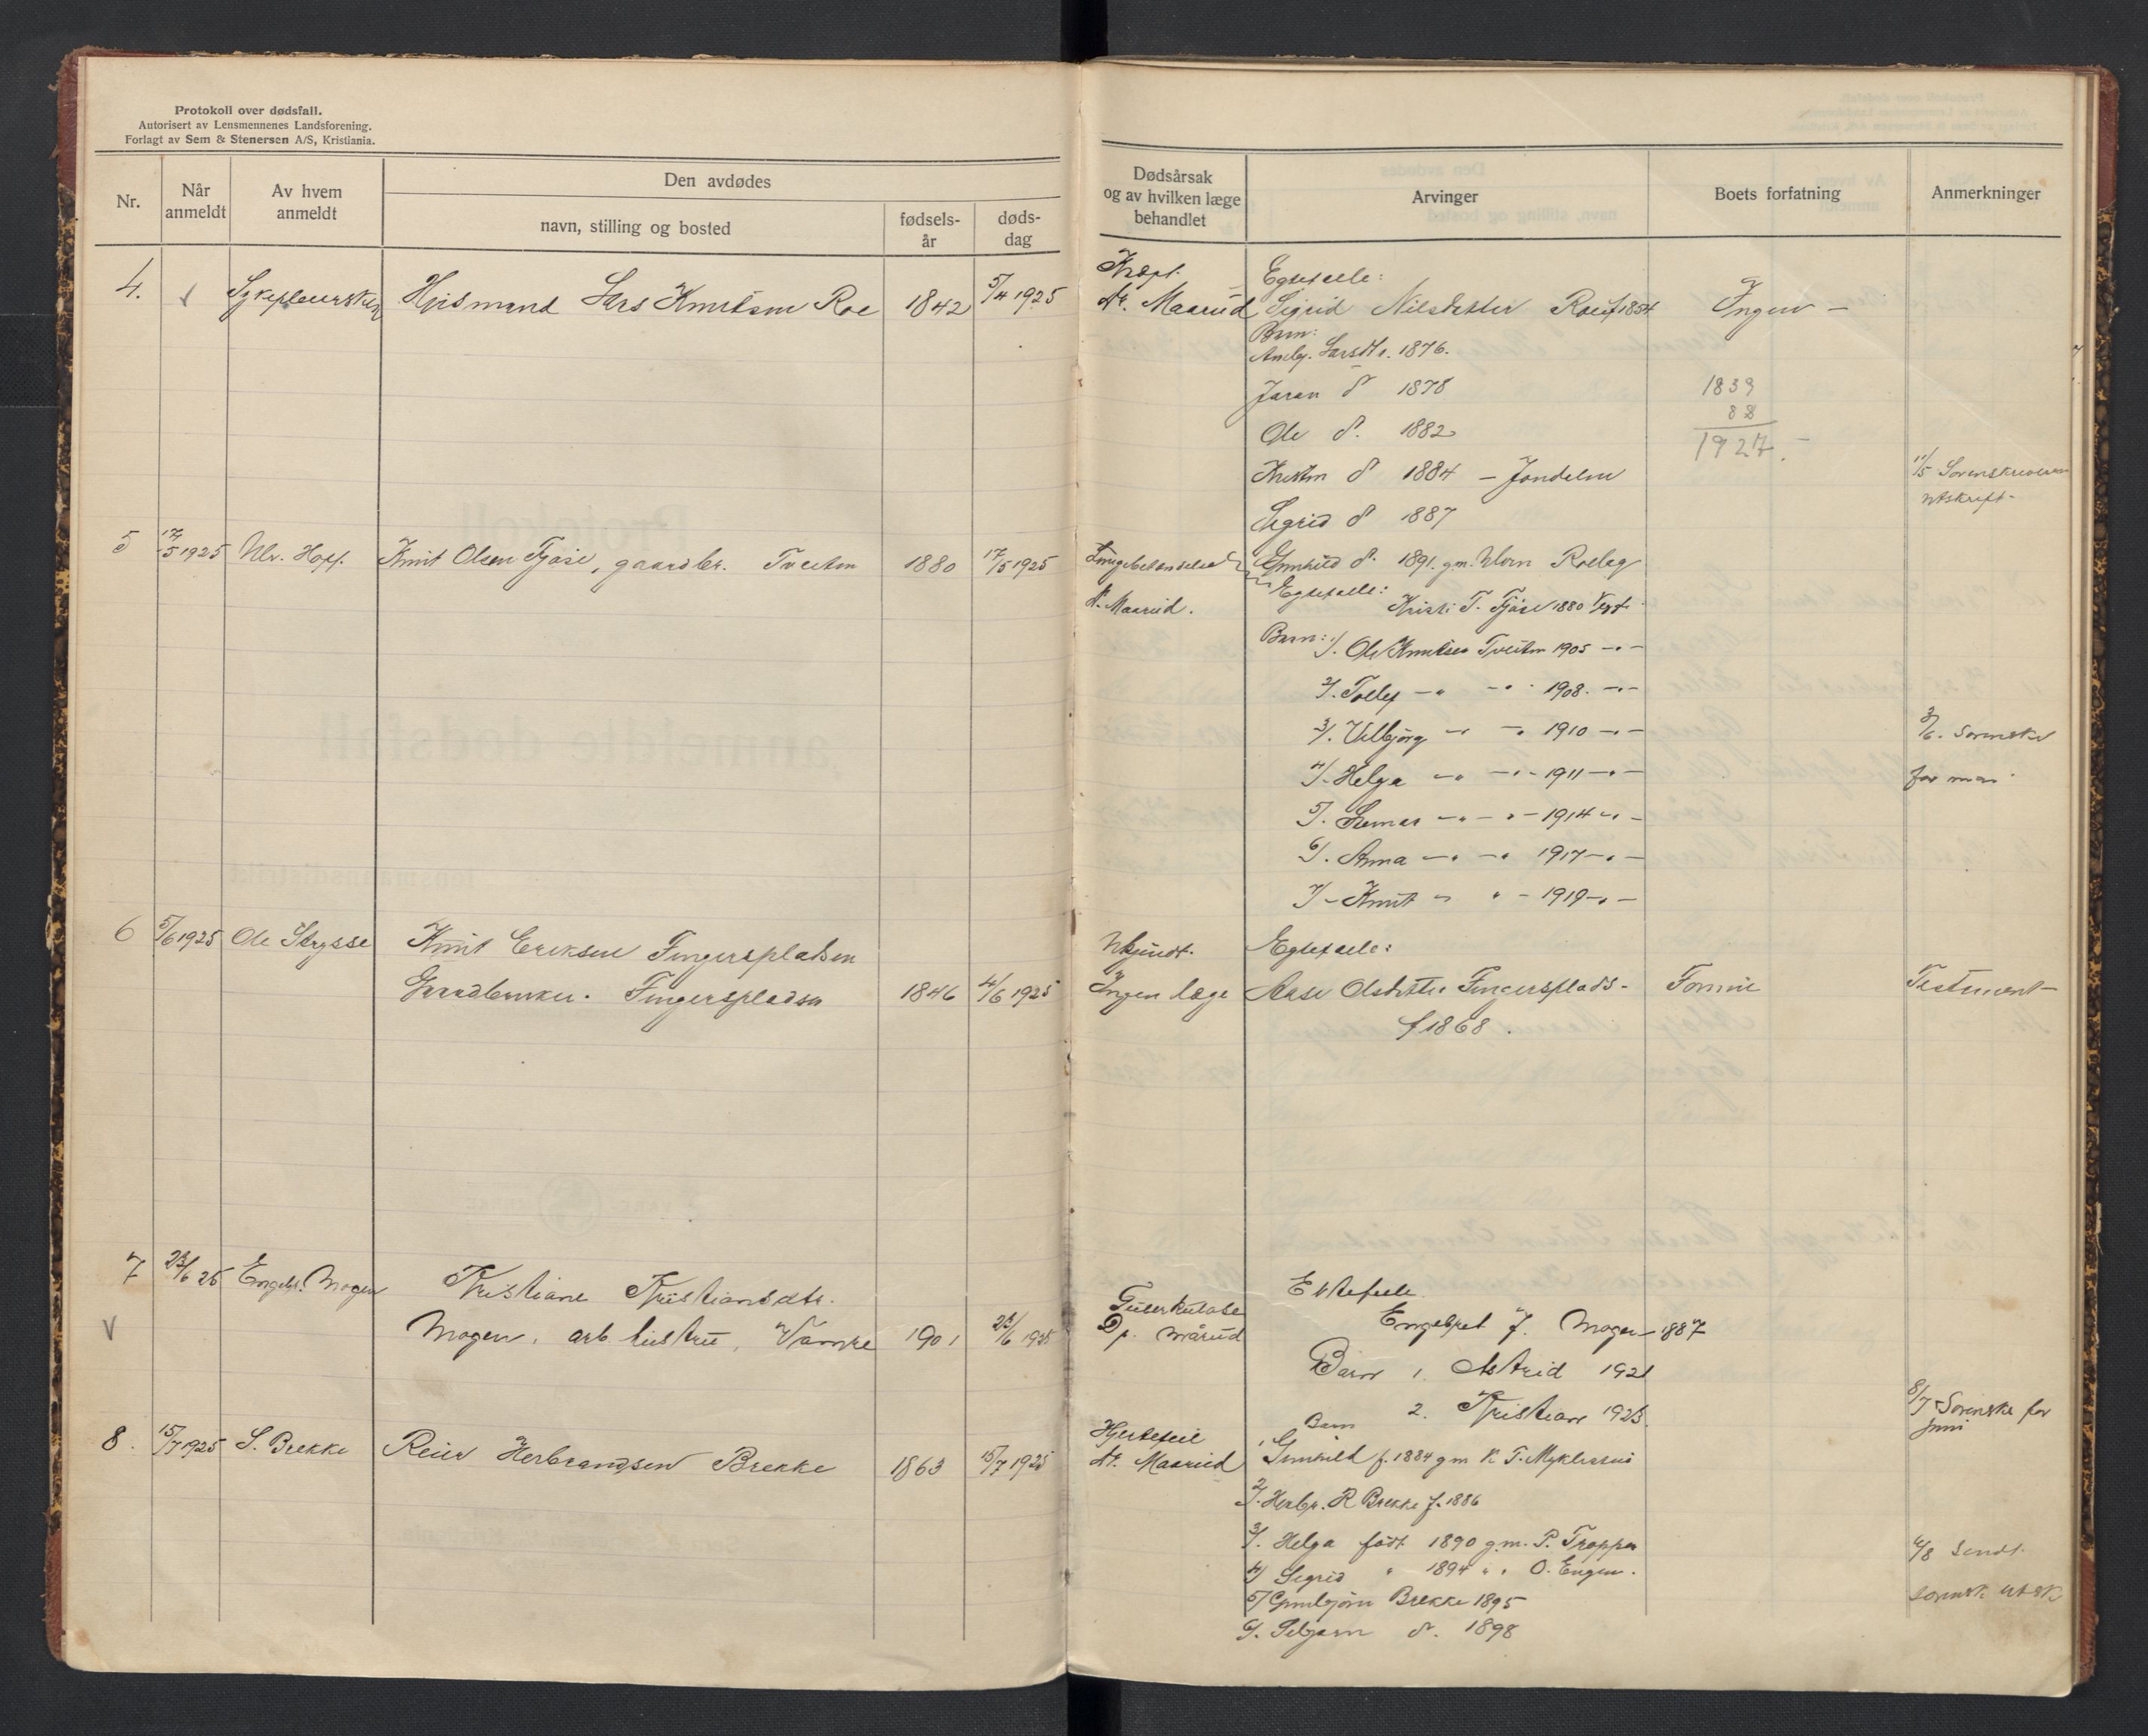 Protokoll over dødsfall.
Autorisert av Lensmennenes Landsforening.
Forlagt av Sem & Stenersen A/S, Kristiania.
Nr.
Når anmeldt
Av hvem anmeldt
Den avdødes
navn, stilling og bosted
fødsels-år
døds-dag
Dødsårsak og av hvilken læge behandlet
Arvinger
Boets forfatning
Anmerkninger
4. Lars Knutsen Roe 1842 5/4 1925
Kræft.
Dr. Maarud
Egtefælle:
Sigrid Nilsdatter Roe f 1854
Ingen –
Barn:
Larsdtr. 1876.
Jaran d 1878
Ole d. 1882
d 1884 –
Sigrid d 1887
Gunhild d. 1891. gm. Rollag
1839
88
1927.
11/5 Sorenskriveren
utskrift.
5 17/5 1925 Knut Olsen Fjøse, gaardbr. Tveiten 1880 17/5 1925
Lungebetændelse
Dr. Maarud.
Egtefælle:
Kristi T. Fjøse 1880
Barn: 1/. Ole Knutsen Tveiten 1905 –"–
2/. Tollef –"– –"– 1908. –"–
3/. Vilbjørg –"– –"– 1910 –"–
4/. Helga –"– –"– 1911 –"–
5/. –"– –"– 1914 –"–
6/. Anna –"– –"– 1917 –"–
7/ – Knut –"– " – 1919 –"–
3/6. Sorenskr
for mai
6 5/6 1925 Ole
Knut Eriksen Fingerspladsen
Gaardbruker. Fingerspladsen 1846 4/6 1925
Ukjendt.
Ingen læge
Egtefælle:
Aase Olsdatter Fingersplads-
f 1868.
Testament –
7 23/6 25 Engebr. Mogen
V
Kristiane Kristiansdtr.
Mogen, arb. hustru, 1901 23/6 1925
Tuberkulose
Dr. Mårud
Ektefelle
Engebret J. Mogen 1887
Barn 1. Astrid 1921
2. Kristian 1923.
8/7 Sorenskr for
juni
8. 15/7 1925 S. Brekke Reier Herbrandsen Brekke 1863 15/7 1925
Hjertefeil
Dr. Maarud
Barn
1 Gunhild f. 1884 gm K T. Myklestu
2/. Herbr. R Brekke f. 1886
3/. Helga født 1890 gm. P. Troppen
4/ Sigrid " 1894 " " O. Engen.
5/ Gunbjørn Brekke 1895
6/. d. 1898
4/8 Sendt
sorensk utsk